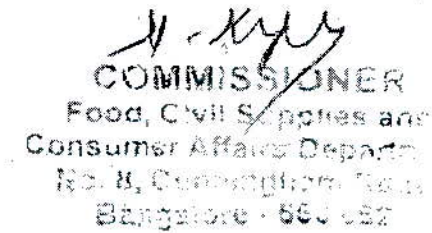 COMMISSIONER
Food, Civil Supplies and
Consumer Affairs Departm
No. 8, Cunningham Road
Bangalore - 560 052